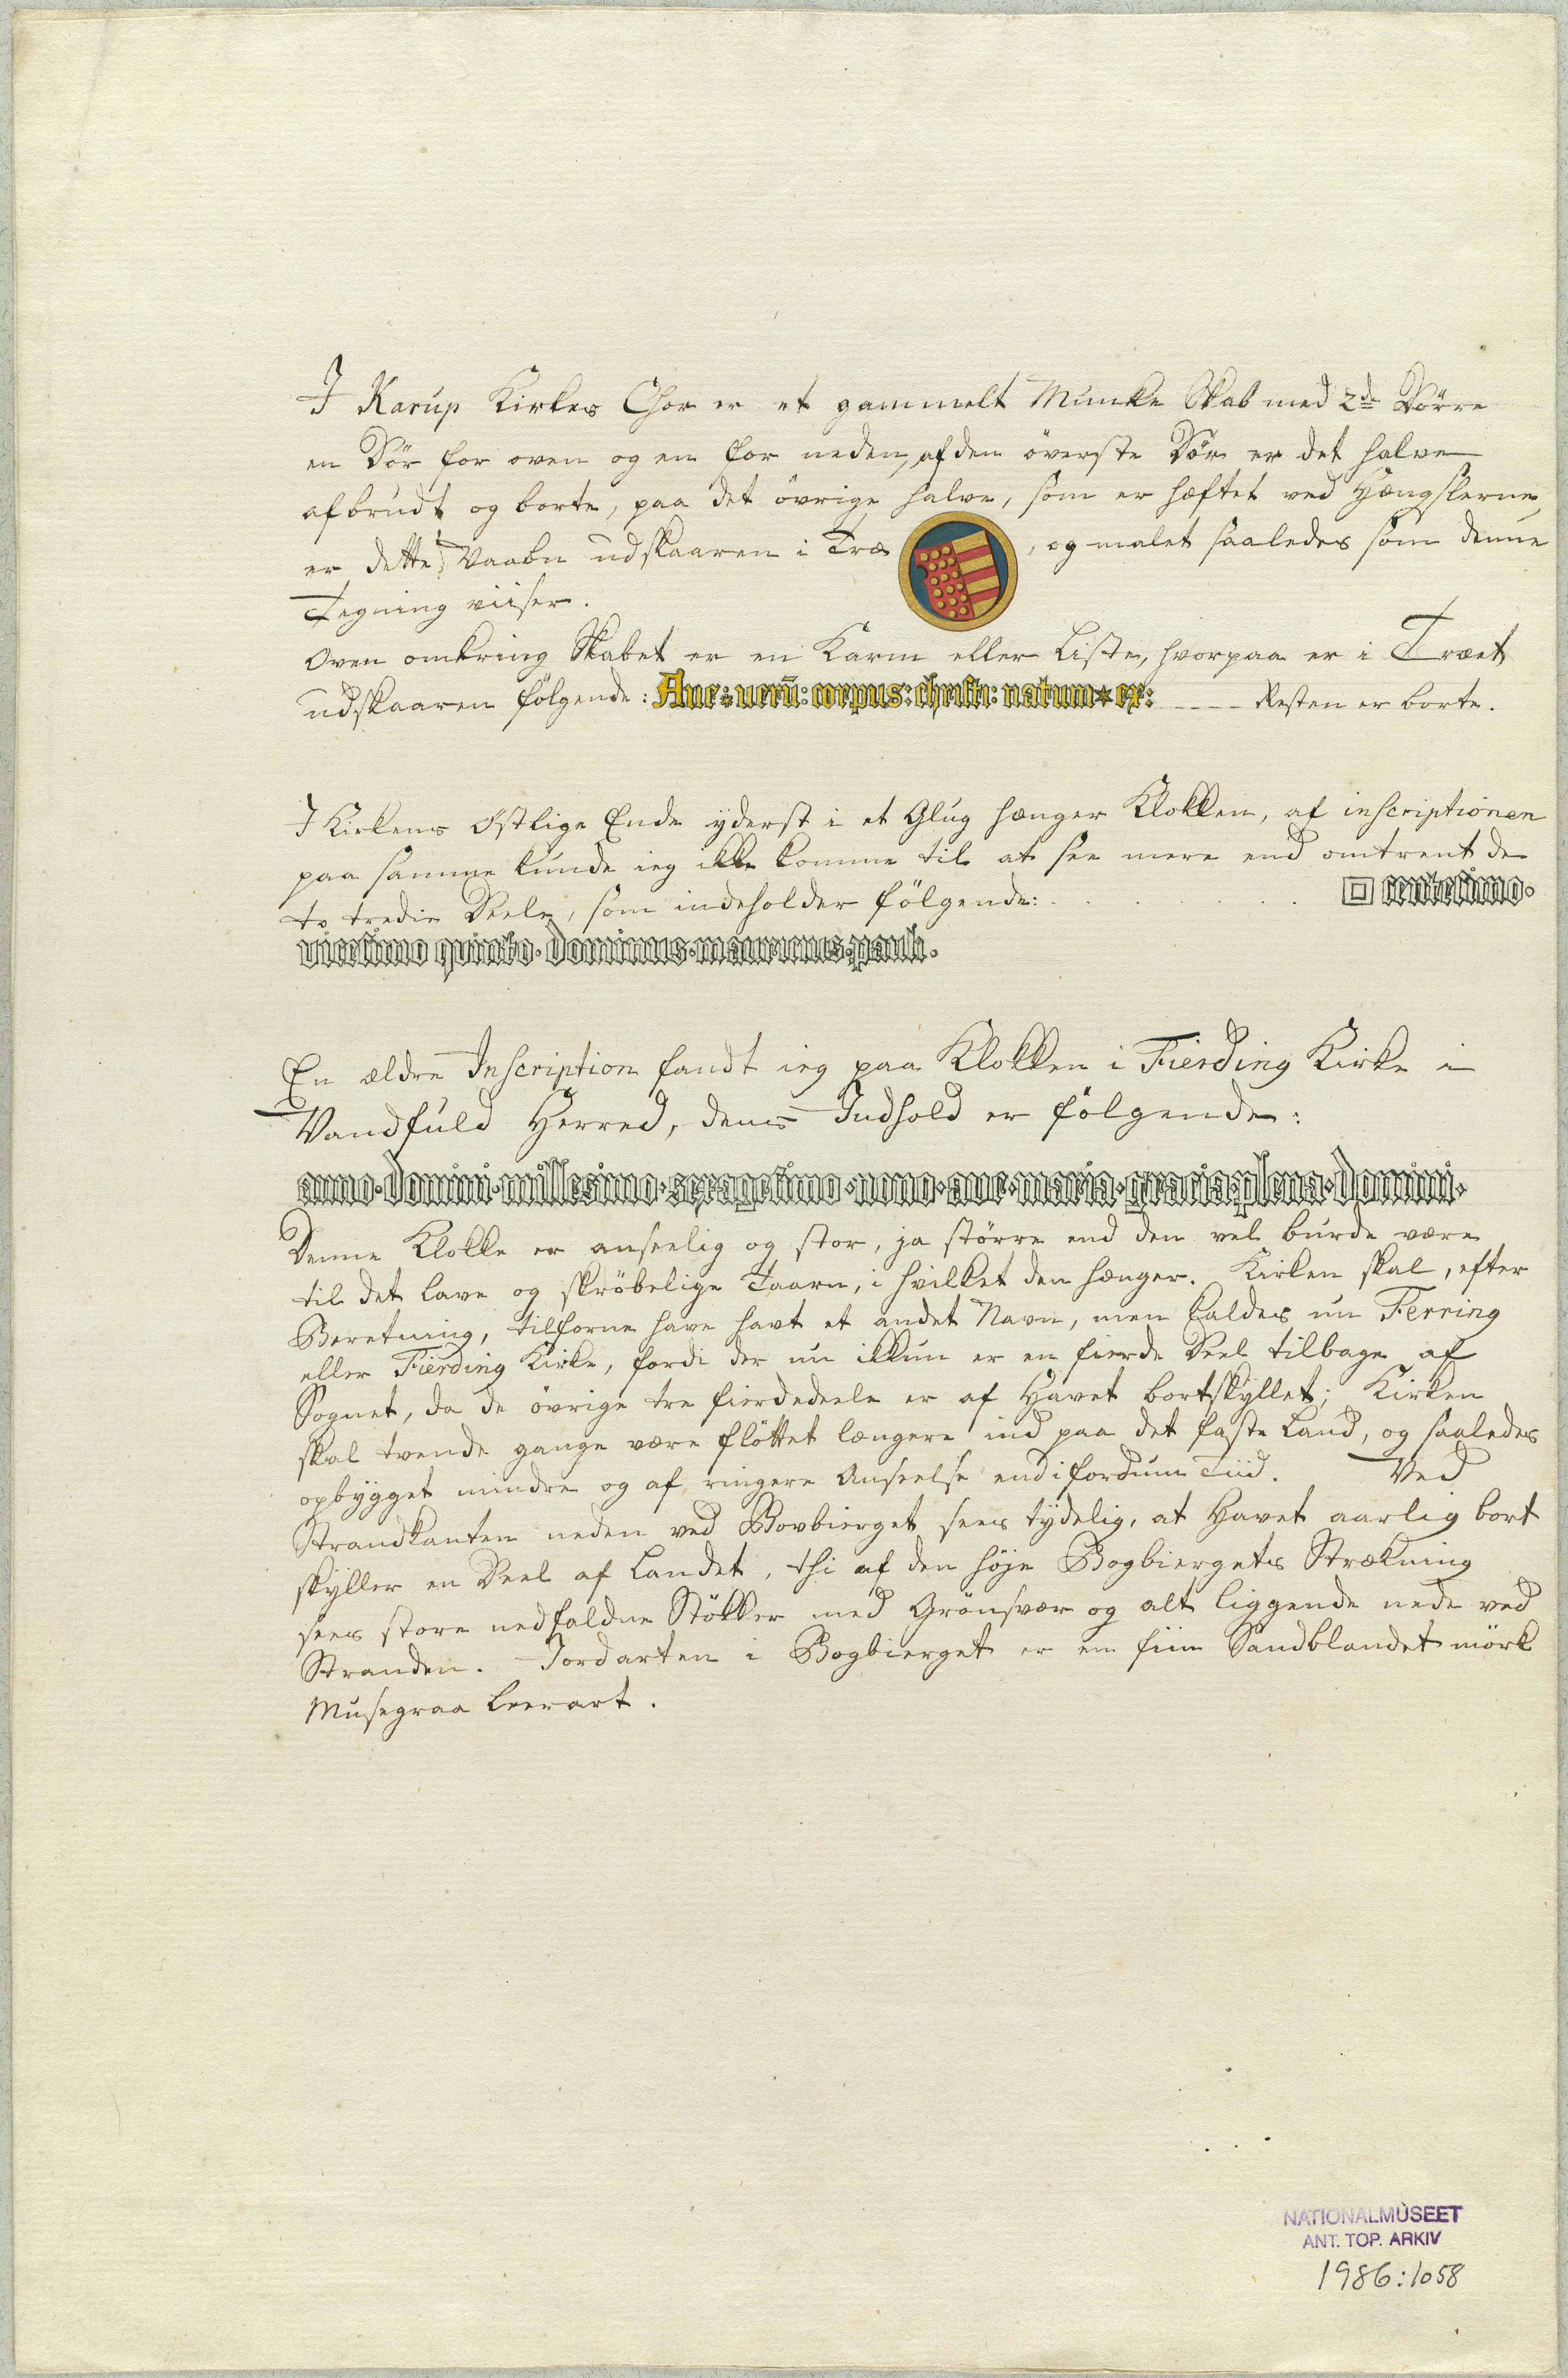 I Karup Kirkes Chor er et gammelt Munke Skab med 2de Dörre
en Dör for oven og en for neden, af den överste Dör er det halve
afbrudt og borte, paa det övrige halve, som er hæftet ved Hængslerne,
er dette Vaaben udskaaren i Træ , og malet saaledes som denne
Tegning viiser.
Oven omkring Skabet er en Karm eller Liste, hvorpaa er i Træet
udskaaren fölgende: Aue: uerū: corpus: christi: natum * ex: ---- Resten er borte.
I Kirkens Östlige Ende yderst i et Glug hænger Klokken, af inscriptionen
paa samme kunde ieg ikke komme til at see mere end omtrent de
to tredie Deele, som indeholder fölgende: . . . . . . . centesimo·
vicesimo quinto· dominus· mauricius· pauli·
En ældre Inscription fandt ieg paa Klokken i Fierding Kirke i
Vandfuld Herred, dens Indhold er fölgende:
anno· domini· millesimo· sexagesimo· nono· ave· maria· gracia plena· domini·
Denne Klokke er anseelig og stor, ja större end den vel burde være
til det lave og skröbelige Taarn, i hvilket den hænger. Kirken skal, efter
Beretning, tilforne have havt et andet Navn, men kaldes nu Ferring
eller Fierding Kirke, fordi der nu ikkun er en fierde Deel tilbage af
Sognet, da de övrige tre fierdedeele er af Havet bortskyllet; Kirken
skal tvende gange være flöttet længere ind paa det faste Land, og saaledes
opbygget mindre og af ringere Anseelse end i fordum Tiid. Ved
Strandkanten neden ved Bovbierget sees tydelig, at Havet aarlig bort
skyller en Deel af Landet, thi af den höje Bogbiergets Strækning
sees store nedfaldne Stökker med Grönsvær og alt liggende nede ved
Stranden. Jordarten i Bogbierget er en fiin Sandblandet mörk
Musegraa Leerart.
NATIONALMUSEET
ANT. TOP. ARKIV
1986:1058